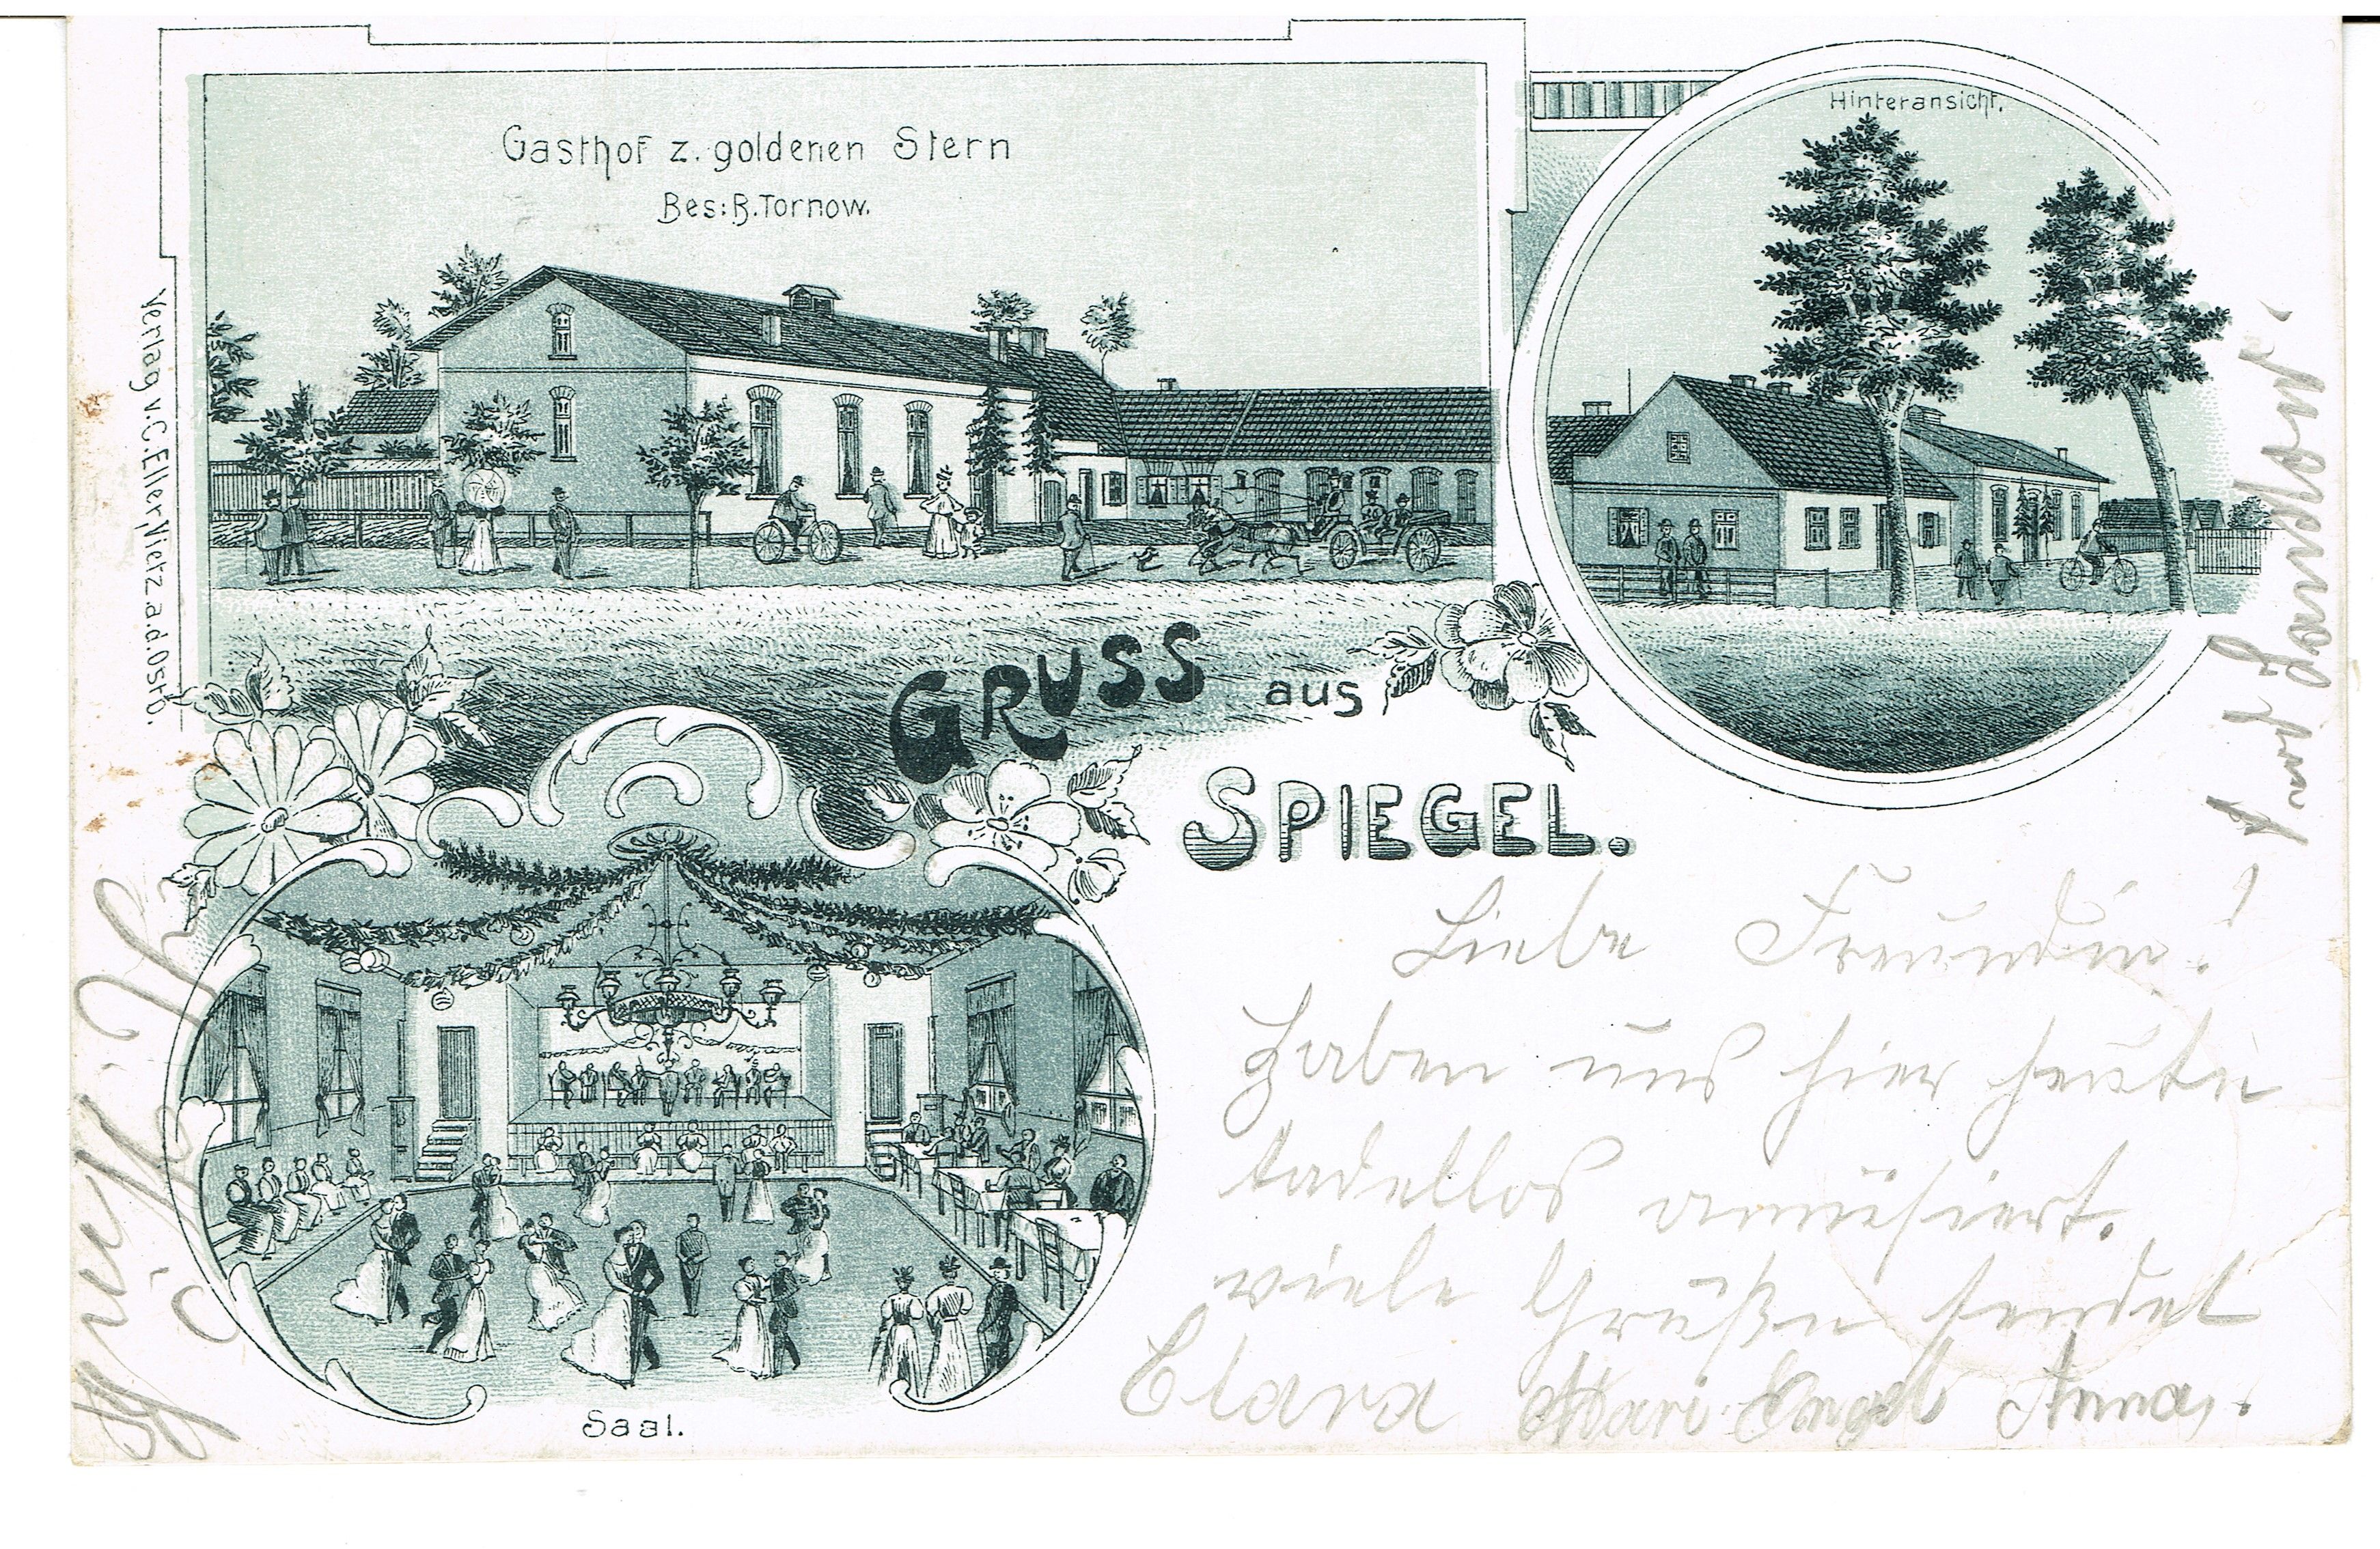 Gasthof z. goldenen Stern
Bes: B. Tornow.
Hinteransicht.
Verlag v. C. Eller, Vietz a.d. Ostb.
GRUSS aus
SPIEGEL.
Saal.
Liebe Freundin!
Haben uns hier heute
tadellos amüsiert.
viele Grüße sendet
Clara Mari Engel Anna.